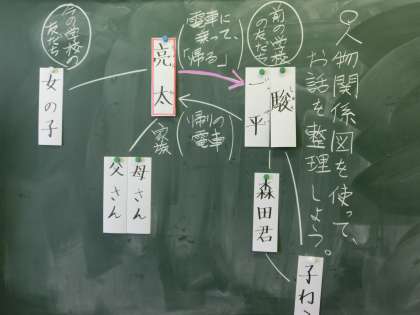 人物関係図を使って、
お話を整理しよう。
前の学校
の友だち
駿
一平
森田君
子ねこ
電車に
乗って、
「帰る」
帰りの
電車
亮太
家族
母さん
父さん
今の学校の
友だち
女の子